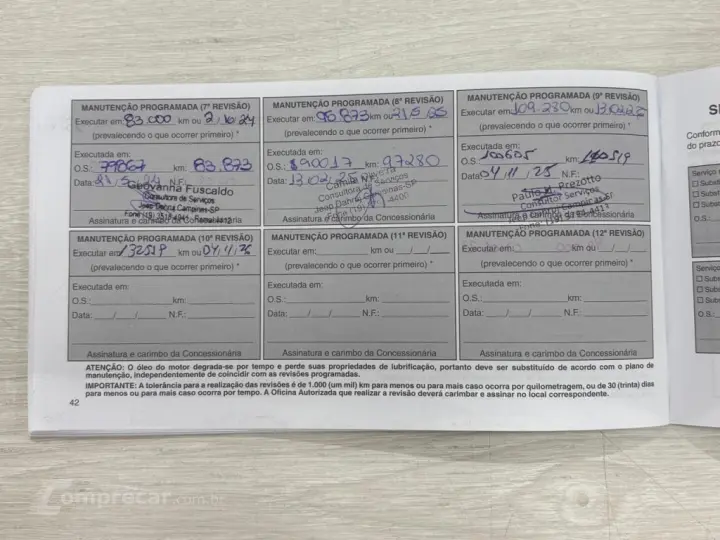 MANUTENÇÃO PROGRAMADA (7ª REVISÃO)
Executar em: 83.000 km ou 2/10/24
(prevalecendo o que ocorrer primeiro) *
Executada em:
O.S.: 79867 km: 83.873
Data: 21/5/24 N.F.:
Geovanna Fuscaldo
Consultora de Serviços
Jeep Dahruj Campinas-SP
Assinatura e carimbo da Concessionária
MANUTENÇÃO PROGRAMADA (8ª REVISÃO)
Executar em: 95.873 km ou 21/5/25
(prevalecendo o que ocorrer primeiro) *
Executada em:
O.S.: 90017 km: 97280
Data: 13/02/25
Consultora de Serviços
Jeep Dahruj Campinas-SP
Assinatura e carimbo da Concessionária
MANUTENÇÃO PROGRAMADA (9ª REVISÃO)
Executar em: 109.280 km ou 13/02/26
(prevalecendo o que ocorrer primeiro) *
Executada em:
O.S.: 100605 km: 120519
Data: 04/11/25 N.F.:
Prezotto
Consultor Serviços
Assinatura e carimbo da Concessionária
MANUTENÇÃO PROGRAMADA (10ª REVISÃO)
Executar em: 132519 km ou 04/11/26
(prevalecendo o que ocorrer primeiro) *
Executada em:
O.S.: km:
Data: / / N.F.:
Assinatura e carimbo da Concessionária
MANUTENÇÃO PROGRAMADA (11ª REVISÃO)
Executar em: km ou / /
(prevalecendo o que ocorrer primeiro) *
Executada em:
O.S.: km:
Data: / / N.F.:
Assinatura e carimbo da Concessionária
MANUTENÇÃO PROGRAMADA (12ª REVISÃO)
Executar em: km ou / /
(prevalecendo o que ocorrer primeiro) *
Executada em:
O.S.: km:
Data: / / N.F.:
Assinatura e carimbo da Concessionária
ATENÇÃO: O óleo do motor degrada-se por tempo e perde suas propriedades de lubrificação, portanto deve ser substituído de acordo com o plano de
manutenção, independentemente de coincidir com as revisões programadas.
IMPORTANTE: A tolerância para a realização das revisões é de 1.000 (um mil) km para menos ou para mais caso ocorra por quilometragem, ou de 30 (trinta) dias
para menos ou para mais caso ocorra por tempo. A Oficina Autorizada que realizar a revisão deverá carimbar e assinar no local correspondente.
42
do prazo
Comprecar.com.br